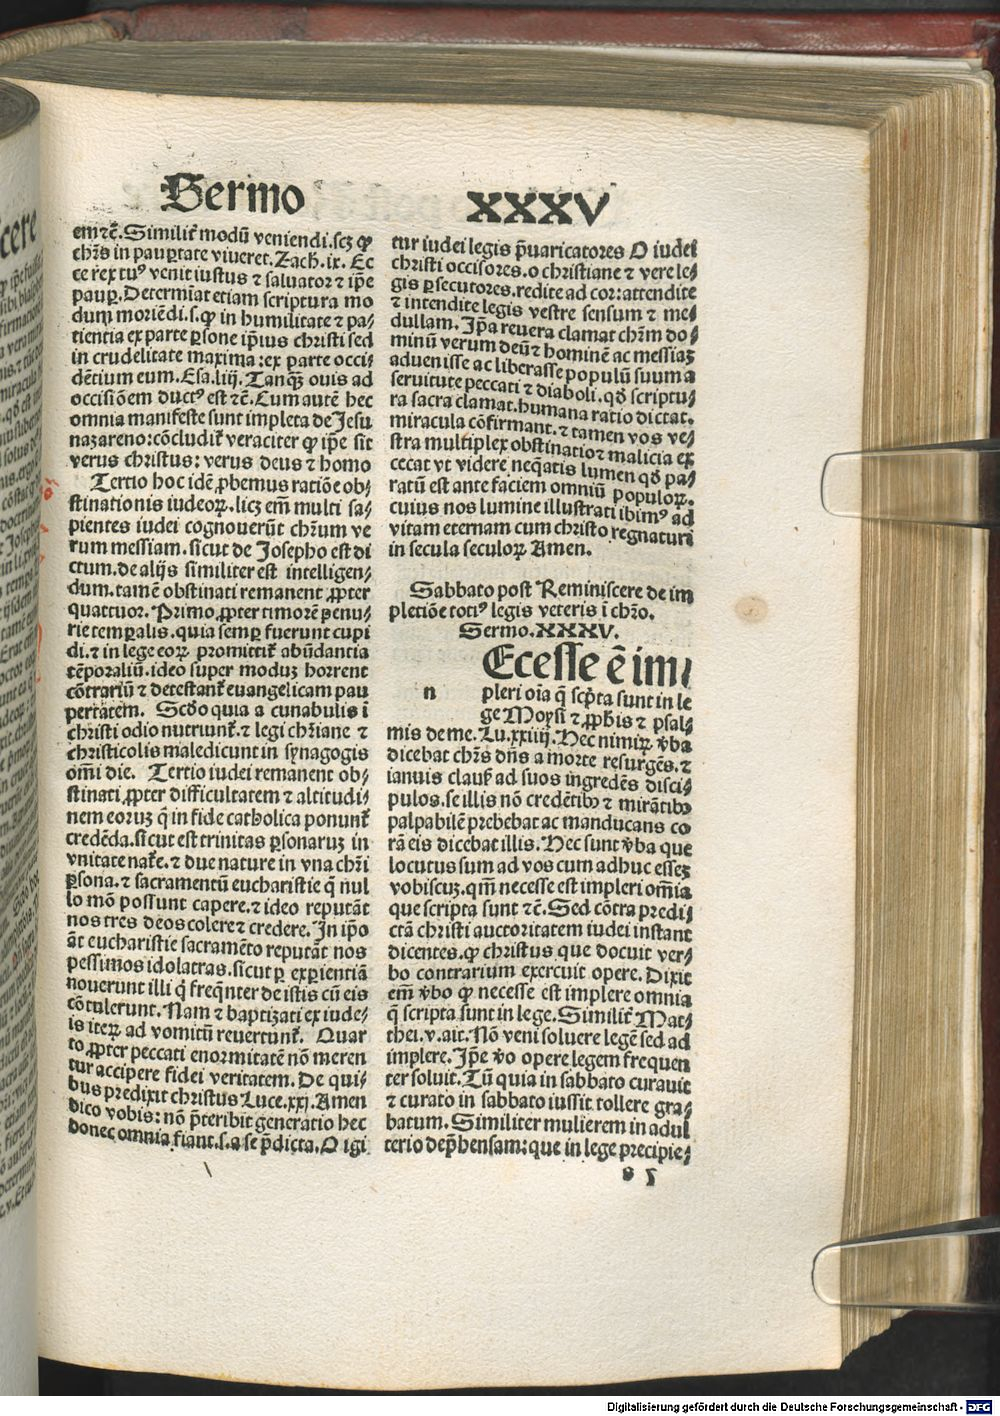 Sermo XXXV
em ⁊c̃. Similit̃ modũ veniendi. scꝫ ꝙ
chr̃s in paup̱tate viueret. Zach. ix. Ec
ce rex tuꝰ venit iustus ⁊ saluator ⁊ ip̃e
paup̱. Determĩat etiam scriptura mo
dum moriẽdi. s. ꝙ in humilitate ⁊ pa⸗
tientia ex parte p̱sone ip̃ius christi sed
in crudelitate maxima: ex parte occi⸗
dẽtium eum. Esa. liij. Tanqꝫ ouis ad
occisiõem ductꝰ est ⁊c̃. Cum autẽ hec
omnia manifeste sunt impleta de Jesu
nazareno: cõcludit̃ veraciter ꝙ ip̃e sit
verus christus: verus deus ⁊ homo
Tertio hoc idẽ ꝓbemus ratiõe ob⸗
stinationis iudeoꝝ. licꝫ em̃ multi sa⸗
pientes iudei cognouerũt chr̃um ve
rum messiam. sicut de Josepho est di
ctum. de alijs similiter est intelligen⸗
dum. tamẽ obstinati remanent ꝓpter
quattuor. Primo ꝓpter timorẽ penu⸗
rie temp̱alis. quia semp̱ fuerunt cupi
di. ⁊ in lege eoꝝ promittit̃ abũdantia
tẽporaliũ. ideo super moduꝫ horrent
cõtrariũ ⁊ detestant̃ euangelicam pau
pertatem. Scd̃o quia a cunabulis ĩ
christi odio nutriunt̃. ⁊ legi chr̃iane ⁊
christicolis maledicunt in synagogis
om̃i die. Tertio iudei remanent ob⸗
stinati ꝓpter difficultatem ⁊ altitudi⸗
nem eoruꝫ q̃ in fide catholica ponunt̃
credẽda. sicut est trinitas p̱sonaruꝫ in
vnitate nat̃e. ⁊ due nature in vna chr̃i
p̱sona. ⁊ sacramentũ eucharistie q̃ nul
lo mõ possunt capere. ⁊ ideo reputãt
nos tres deos colere ⁊ credere. In ip̃o
ãt eucharistie sacramẽto reputãt nos
pessimos idolatras. sicut p̱ exp̱ientiã
nouerunt illi q̃ freq̃nter de istis cũ eis
cõtulerunt. Nam ⁊ baptizati ex iude⸗
is iteꝝ ad vomitũ reuertunt̃. Quar
to ꝓpter peccati enormitatẽ nõ meren
tur accipere fidei veritatem. De qui⸗
bus predixit christus Luce. xxj. Amen
dico vobis: nõ p̃teribit generatio hec
donec omnia fiant. s. a se p̃dicta. O igi
tur iudei legis p̃uaricatores O iudei
christi occisores. o christiane ⁊ vere le⸗
gis p̱secutores. redite ad cor: attendite
⁊ intendite legis vestre sensum ⁊ me⸗
dullam. Ip̃a reuera clamat chr̃m do⸗
minũ verum deũ ⁊ hominẽ ac messiaꝫ
aduenisse ac liberasse populũ suum a
seruitute peccati ⁊ diaboli. qd̃ scriptu⸗
ra sacra clamat. humana ratio dictat.
miracula cõfirmant. ⁊ tamen vos ve⸗
stra multiplex obstinatio ⁊ malicia ex
cecat vt videre neq̃atis lumen qd̃ pa⸗
ratũ est ante faciem omniũ populoꝝ.
cuius nos lumine illustrati ibimꝰ ad
vitam eternam cum christo regnaturi
in secula seculoꝝ Amen.
Sabbato post Reminiscere de im
pletiõe totiꝰ legis veteris ĩ chr̃o.
Sermo. XXXV.
n Ecesse ẽ im⸗
pleri oĩa q̃ scp̃ta sunt in le
ge Moysi ⁊ ꝓph̃is ⁊ psal⸗
mis de me. Lu. xxiiij. Hec nimiꝝ ṽba
dicebat chr̃s dñs a morte resurgẽs. ⁊
ianuis claus̃ ad suos ingredẽs disci⸗
pulos. se illis nõ credẽtibꝰ ⁊ mirãtibꝰ
palpabilẽ prebebat ac manducans co
rã eis dicebat illis. Hec sunt ṽba que
locutus sum ad vos cum adhuc esseꝫ
vobiscuꝫ. qm̃ necesse est impleri om̃ia
que scripta sunt ⁊c̃. Sed cõtra predi⸗
ctã christi auctoritatem iudei instant
dicentes. ꝙ christus que docuit ver⸗
bo contrarium exercuit opere. Dixit
em̃ ṽbo ꝙ necesse est implere omnia
q̃ scripta sunt in lege. Similit̃ Mat⸗
thei. v. ait. Nõ veni soluere legẽ sed ad
implere. Ip̃e ṽo opere legem frequen
ter soluit. Tũ quia in sabbato curauit
⁊ curato in sabbato iussit tollere gra⸗
batum. Similiter mulierem in adul
terio dep̃hensam: que in lege precipie⸗
Digitalisierung gefördert durch die Deutsche Forschungsgemeinschaft - DFG